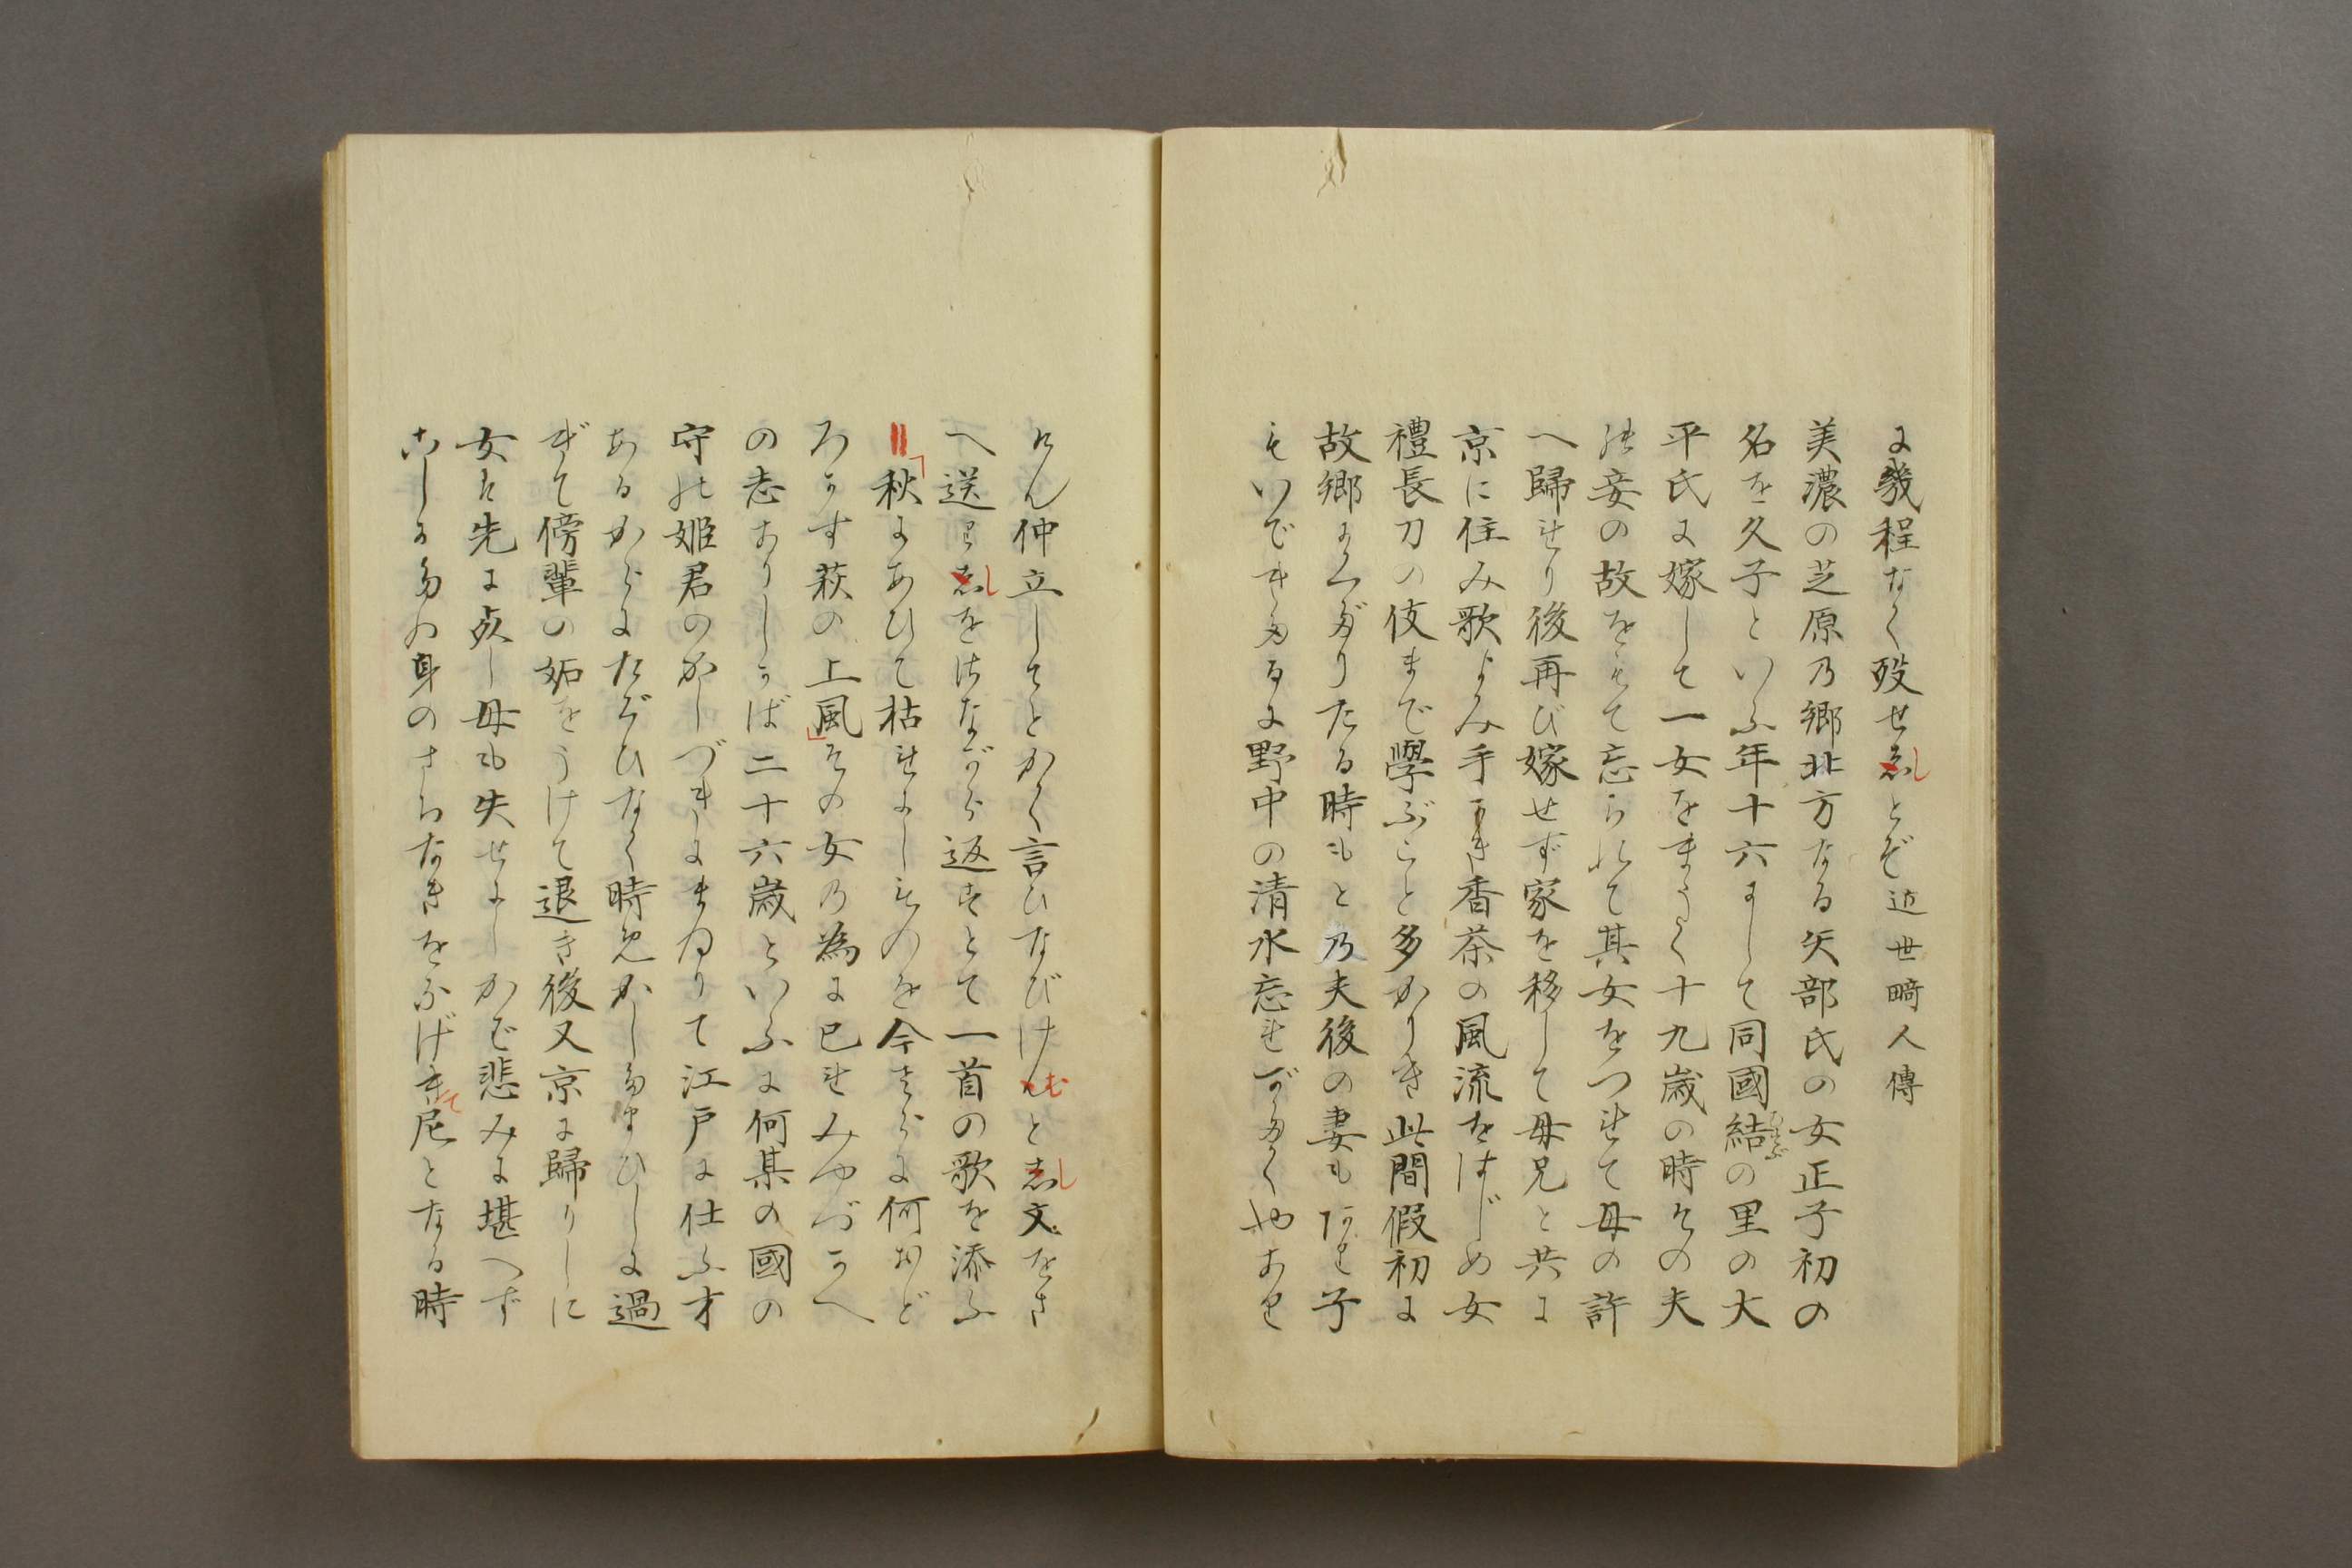 に幾程なく歿せしとぞ近世畸人傳
美濃の芝原乃郷北方なる矢部氏の女正子初の
名を久子といふ年十六にして同國結の里の大
平氏に嫁して一女をまうく十九歳の時その夫
妾の故をもて忘られて其女をつれて母の許
へ歸れり後再び嫁せず家を移して母兄と共に
京に住み歌よみ手かき香茶の風流をはじめ女
禮長刀の伎まで學ぶこと多かりき此間假初に
故郷にくだりたる時もと乃夫後の妻もなれ子
もいできたるに野中の清水忘れがたくやあり
けん仲立してとかく言ひなびけむとし文をさ
へ送りしをはながら返すとて一首の歌を添ふ
秋にあひて枯れにしものを今さらに何おど
ろかす萩の上風その女乃為に已れみやづかへ
の志ありしかば二十六歳といふに何某の國の
守の姫君のかしづきにまゐりて江戸に仕ふ才
あるからにたぐひなく時めかしたまひしに過
ぎて傍輩の妬をうけて退き後又京に歸りしに
女は先に歿し母も失せにしかば悲みに堪へず
こしかたの身のさちなきをなげきて尼となる時